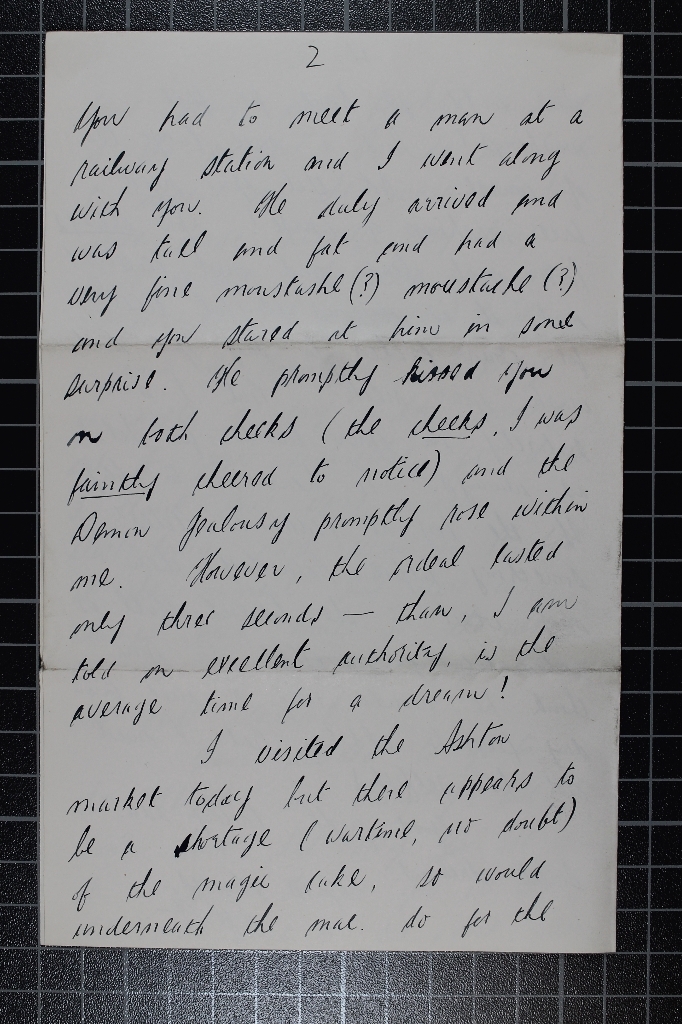 2
You had to meet a man at a
railway station and I went along
with you. He duly arrived and
was tall and fat and had a
very fine moustashe (?) moustache (?)
and you stared at him in some
surprise. He promptly kissed you
on both cheeks (the cheeks, I was
faintly cheered to notice) and the
Demon Jealousy promptly rose within
me. However, the ordeal lasted
only three seconds — than, I am
told on excellent authority, is the
average time for a dream!
I visited the Ashton
market today but there appears to
be a shortage (wartime, no doubt)
of the magic cake, so would
underneath the mac. do for the